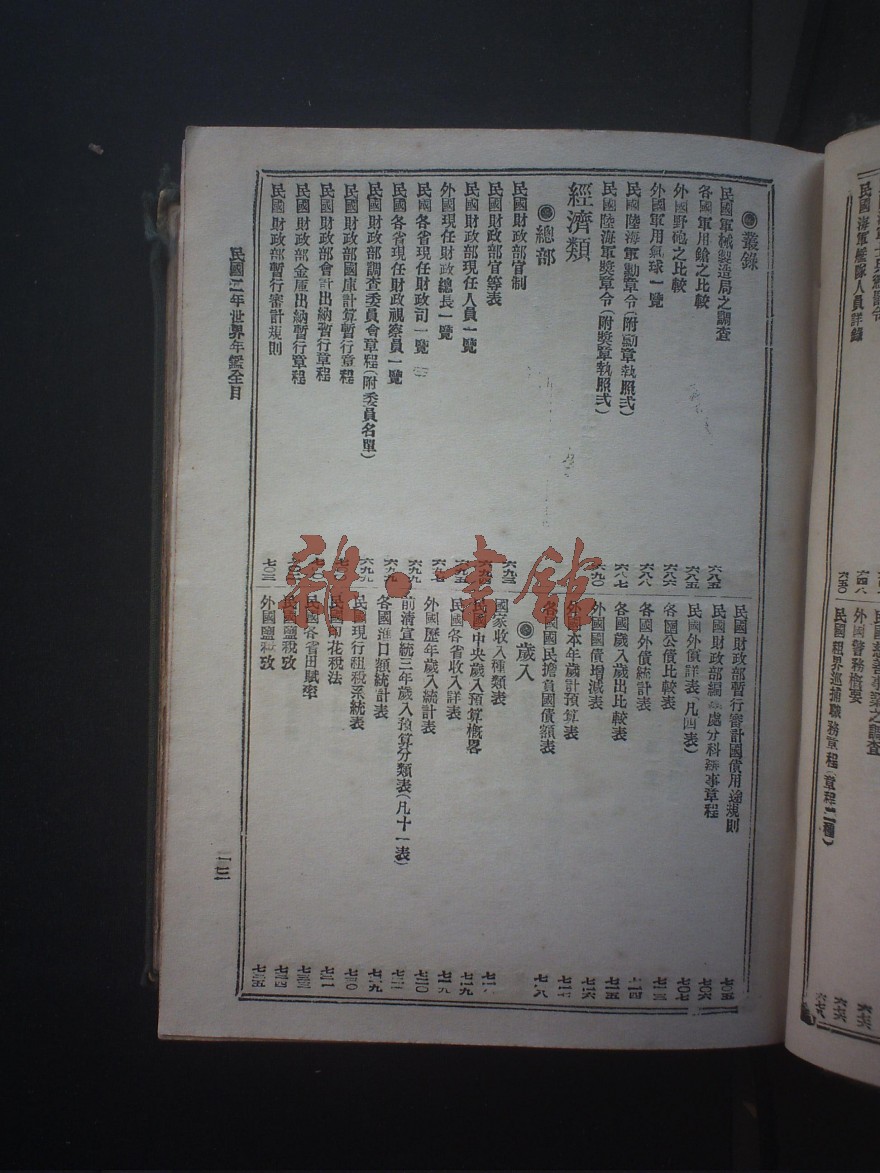 民國海軍艦隊人員詳録
六四八
六五〇
外國警務概要
民國租界巡捕職務章程(章程二種)
◉叢錄
民國軍械製造局之調查
六八五
各國軍用鎗之比較
六八五
外國野砲之比較
六八六
外國軍用氣球一覽
六八八
民國陸海軍勳章令(附勳章執照式)
六八七
民國陸海軍獎章令(附獎章執照式)
六九〇
經濟類
◉總部
民國財政部官制
六九三
民國財政部官等表
民國財政部現任人員一覽
六九五
外國現任財政總長一覽
民國各省現任財政司一覽
民國各省現任財政視察員一覽
民國財政部調查委員會章程(附委員名單)
民國財政部國庫計算暫行章程
民國財政部會計出納暫行章程
民國財政部金庫出納暫行章程
民國財政部暫行審計規則
七〇三
民國財政部暫行審計國債用途規則
七〇五
民國財政部編 處分科辦事章程
七〇六
民國外債詳表(凡四表)
七〇七
各國公債比較表
七一三
各國外債統計表
七一四
各國歲入歲出比較表
七一五
外國國債增減表
七一六
外國本年歲計預算表
七一七
各國國民擔負國債額表
七一八
◉歲入
國家收入種類表
民國中央歲入預算概畧
七一九
民國各省收入詳表
七一九
外國歷年歲入統計表
七二〇
前清宣統三年歲入預算分類表(凡十一表)
各國進口額統計表
民國現行租稅系統表
七三〇
民國印花稅法
七三一
民國各省田賦率
七三三
民國鹽稅攷
七三四
外國鹽稅攷
七三五
民國二年世界年鑑全目
一三
雜·書館